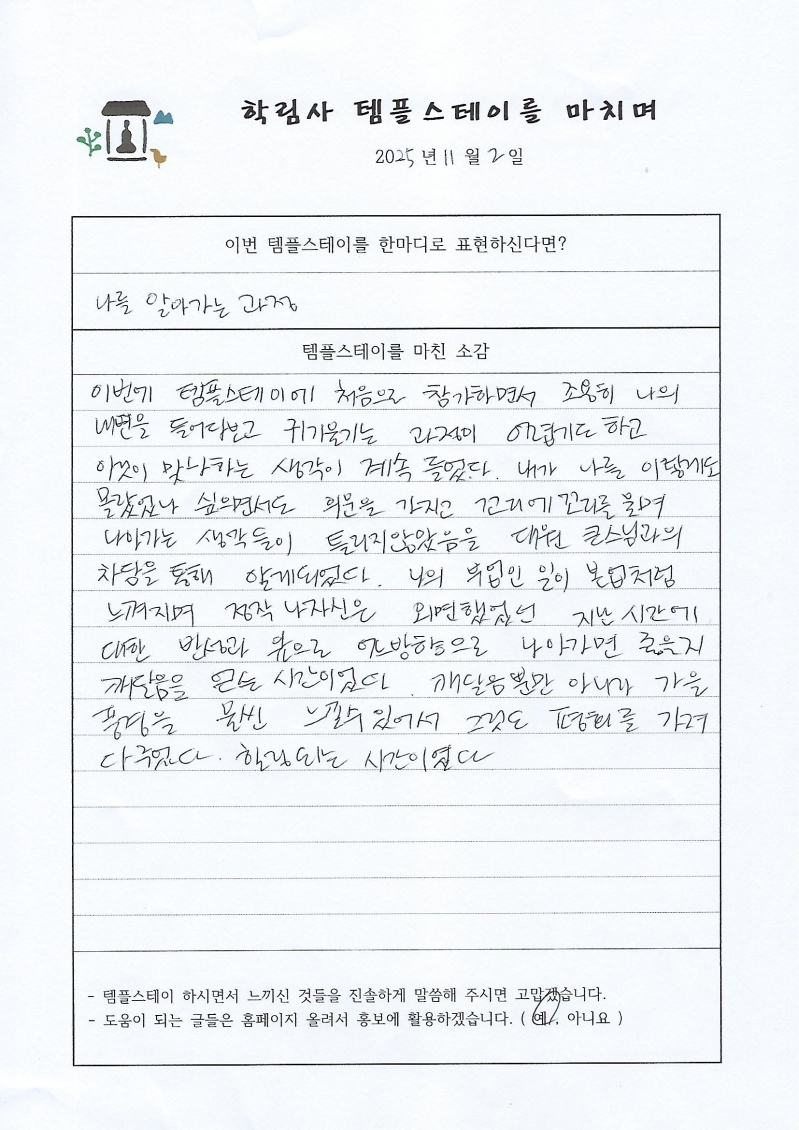 학림사 템플스테이를 마치며
2025년 11월 2일
이번 템플스테이를 한마디로 표현하신다면?
나를 알아가는 과정
템플스테이를 마친 소감
이번에 템플스테이에 처음으로 참가하면서 조용히 나의
내면을 들여다보고 귀기울기는 과정이 어렵기도 하고
이것이 맞나하는 생각이 계속 들었다. 내가 나를 이렇게도
몰랐었나 싶으면서도 의문을 가지고 꼬리에 꼬리를 물며
나아가는 생각들이 틀리지않았음을 대원 큰스님과의
차담을 통해 알게되었다. 나의 부업인 일이 본업처럼
느껴지며 정작 나자신은 외면했었던 지난 시간에
대한 반성과 앞으로 어느방향으로 나아가면 좋을지
깨달음을 얻는 시간이었다. 깨달음뿐만 아니라 가을
풍경을 물씬 느낄수있어서 그것도 평화를 가져
다주었다. 힐링되는 시간이였다
- 템플스테이 하시면서 느끼신 것들을 진솔하게 말씀해 주시면 고맙겠습니다.
- 도움이 되는 글들은 홈페이지 올려서 홍보에 활용하겠습니다. ( 예, 아니요 )